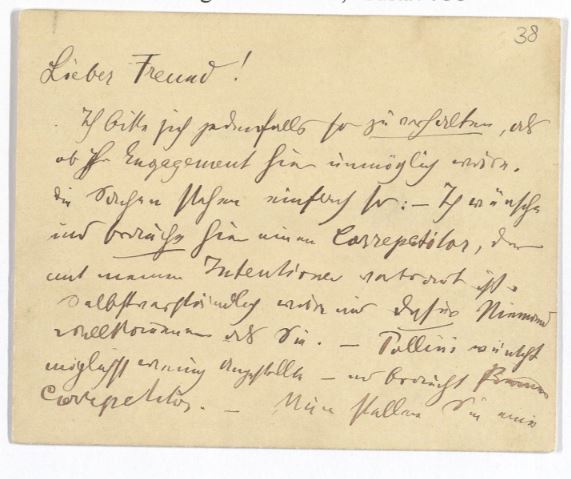 38
Lieber Freund!
Ich bitte sich jedenfalls so zu verhalten, als
ob Ihr Engagement hier unmöglich wäre.
Die Sachen stehen einfach so: – Ich wünsche
und brauche hier einen Correpetitor, der
mit meinen Intentionen vertraut ist.
Selbstverständlich wäre mir dafür Niemand
willkommener als Sie. – Pollini wünscht
möglichst wenig Angestellte – und braucht
Correpetitor. – Nun stellen Sie eine